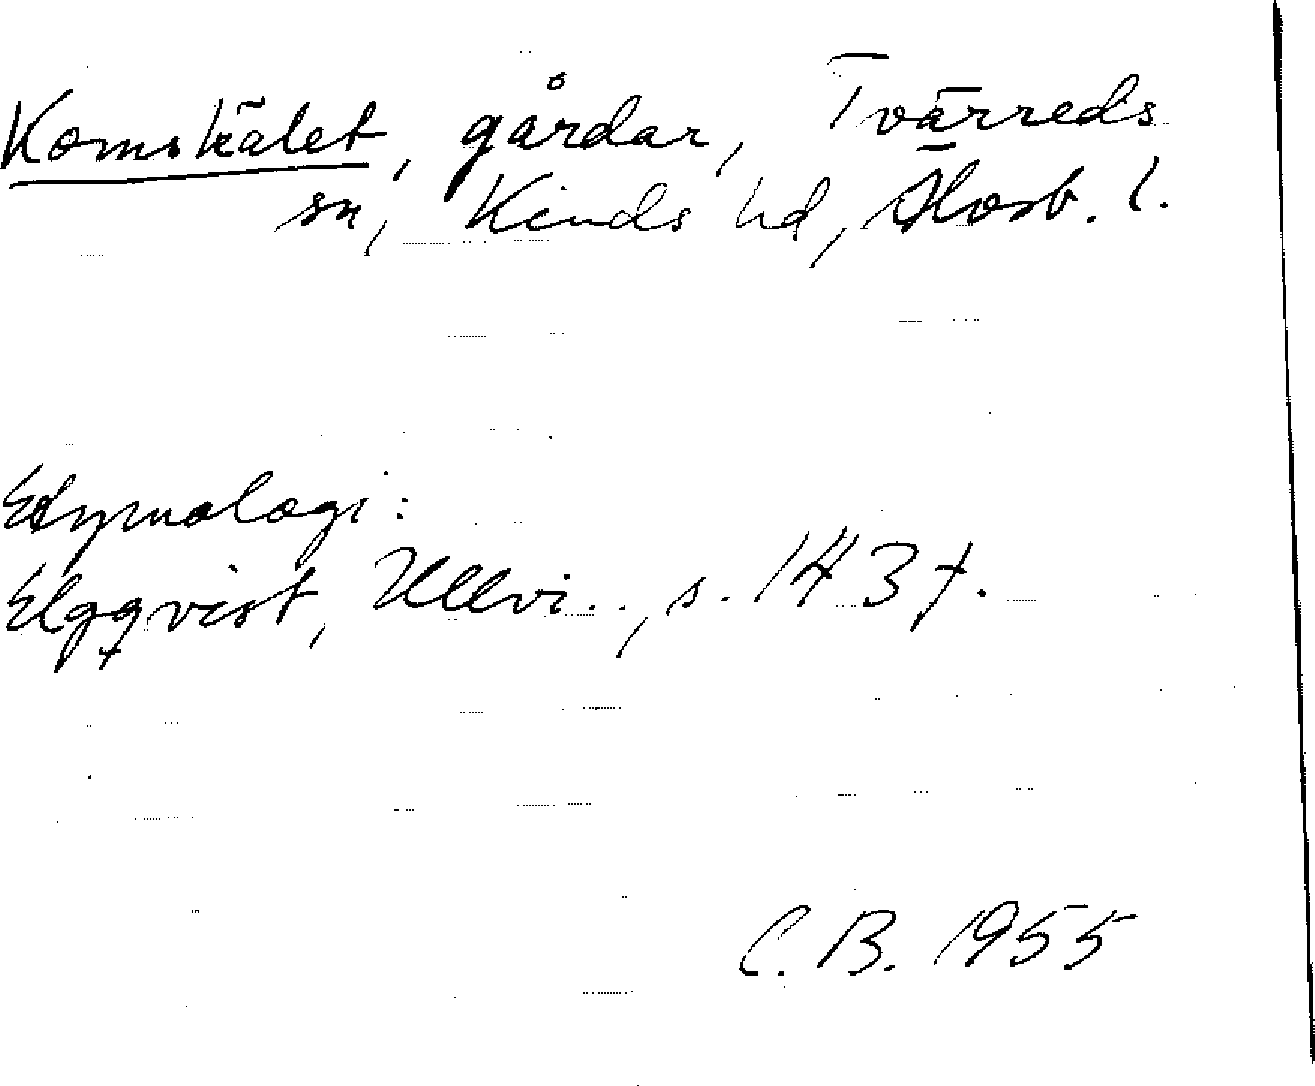 Komskälet, gårdar, Tvärreds
sn, Kinds hd, Älvsb. l.
Etymologi:
Elgqvist, Ullvi.., s. 143 f.
C.B. 1955